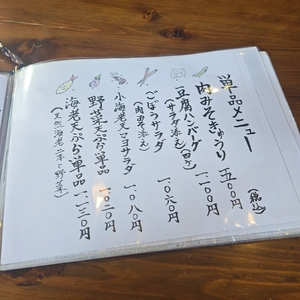 単品メニュー (税込)
肉みそきゅうり 五〇〇円
豆腐ハンバーグ 一、一〇〇円
(サラダ添え)
ごぼうサラダ 一、〇六〇円
(肉みそ添え)
小海老天マヨサラダ 一、〇八〇円
野菜天ぷら単品 一、〇二〇円
海老天ぷら単品 一、一三〇円
(天然海老二本と野菜)